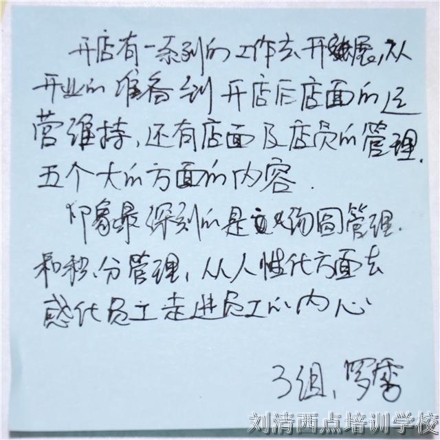 开店有一系列的工作去开展,从
开业的准备到开店后店面的运
营维持,还有店面及店员的管理.
五个大的方面的内容.
印象最深刻的是 图管理.
和积分管理,从人性化方面去
感化员工走进员工的内心
3组,罗秀
刘清西点培训学校